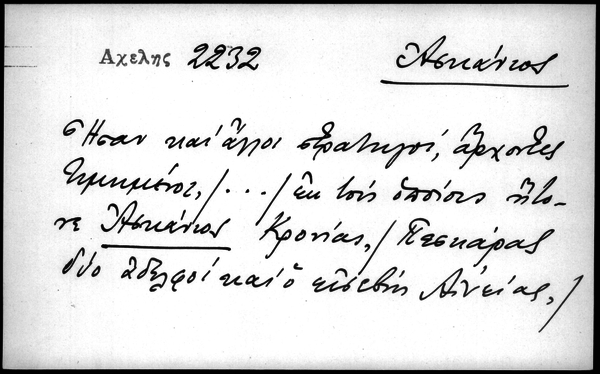 Αχελης 2232
Ἀσκάνιος
Ἦσαν καὶ ἄλλοι στρατηγοί, ἄρχοντες
τιμημένοι, /.../ ἐκ τοὺς ὁποίους ἦτο-
νε Ἀσκάνιος Κρονίας, / Πεσκάρας
δύο ἀδελφοὶ καὶ ὁ εὐσεβὴς Αἰνείας, /